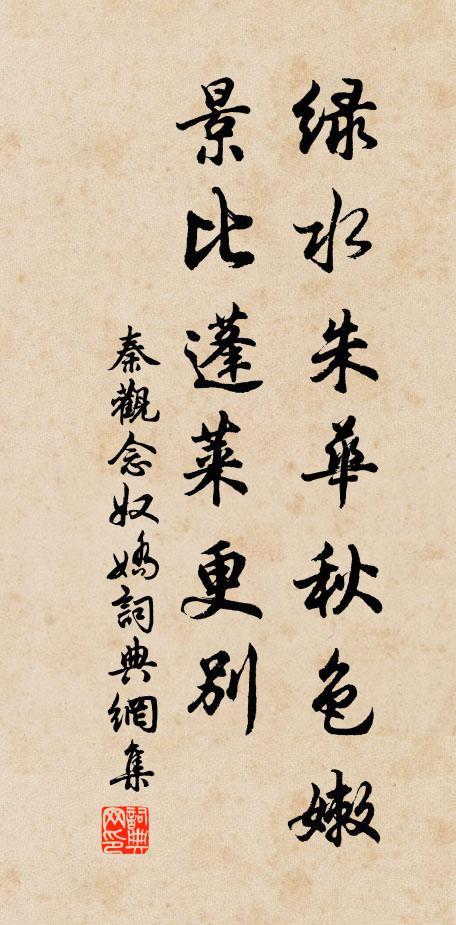 緑水朱華秋色嫩
景比蓬萊更別
秦觀念奴嬌詞典網集
詞典網印